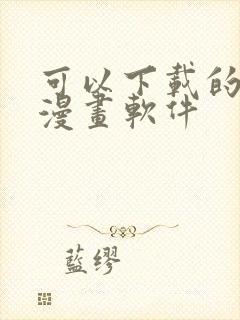 可以下載的
漫畫軟件
藍缪